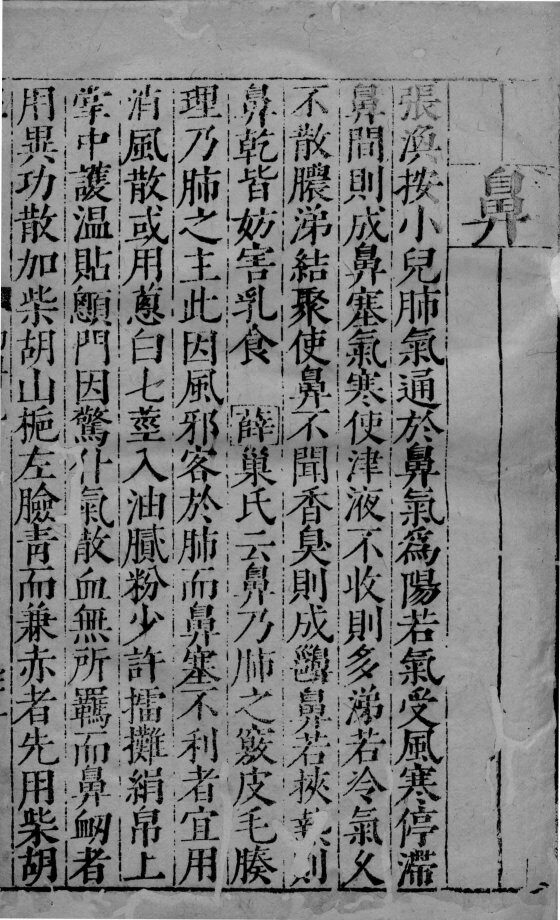 鼻
張渙按小兒肺氣通於鼻氣爲陽若氣受風寒停滯
鼻間則成鼻塞氣寒使津液不收則多涕若冷氣久
不散膿涕結聚使鼻不聞香臭則成齆鼻若挾熱則
鼻乾皆妨害乳食 薛巢氏云鼻乃肺之竅皮毛腠
理乃肺之主此因風邪客於肺而鼻塞不利者宜用
消風散或用蔥白七莖入油膩粉少許擂攤絹帛上
掌中護温貼顖門因驚仆氣散血無所羈而鼻衂者
用異功散加柴胡山梔左臉青而兼赤者先用柴胡